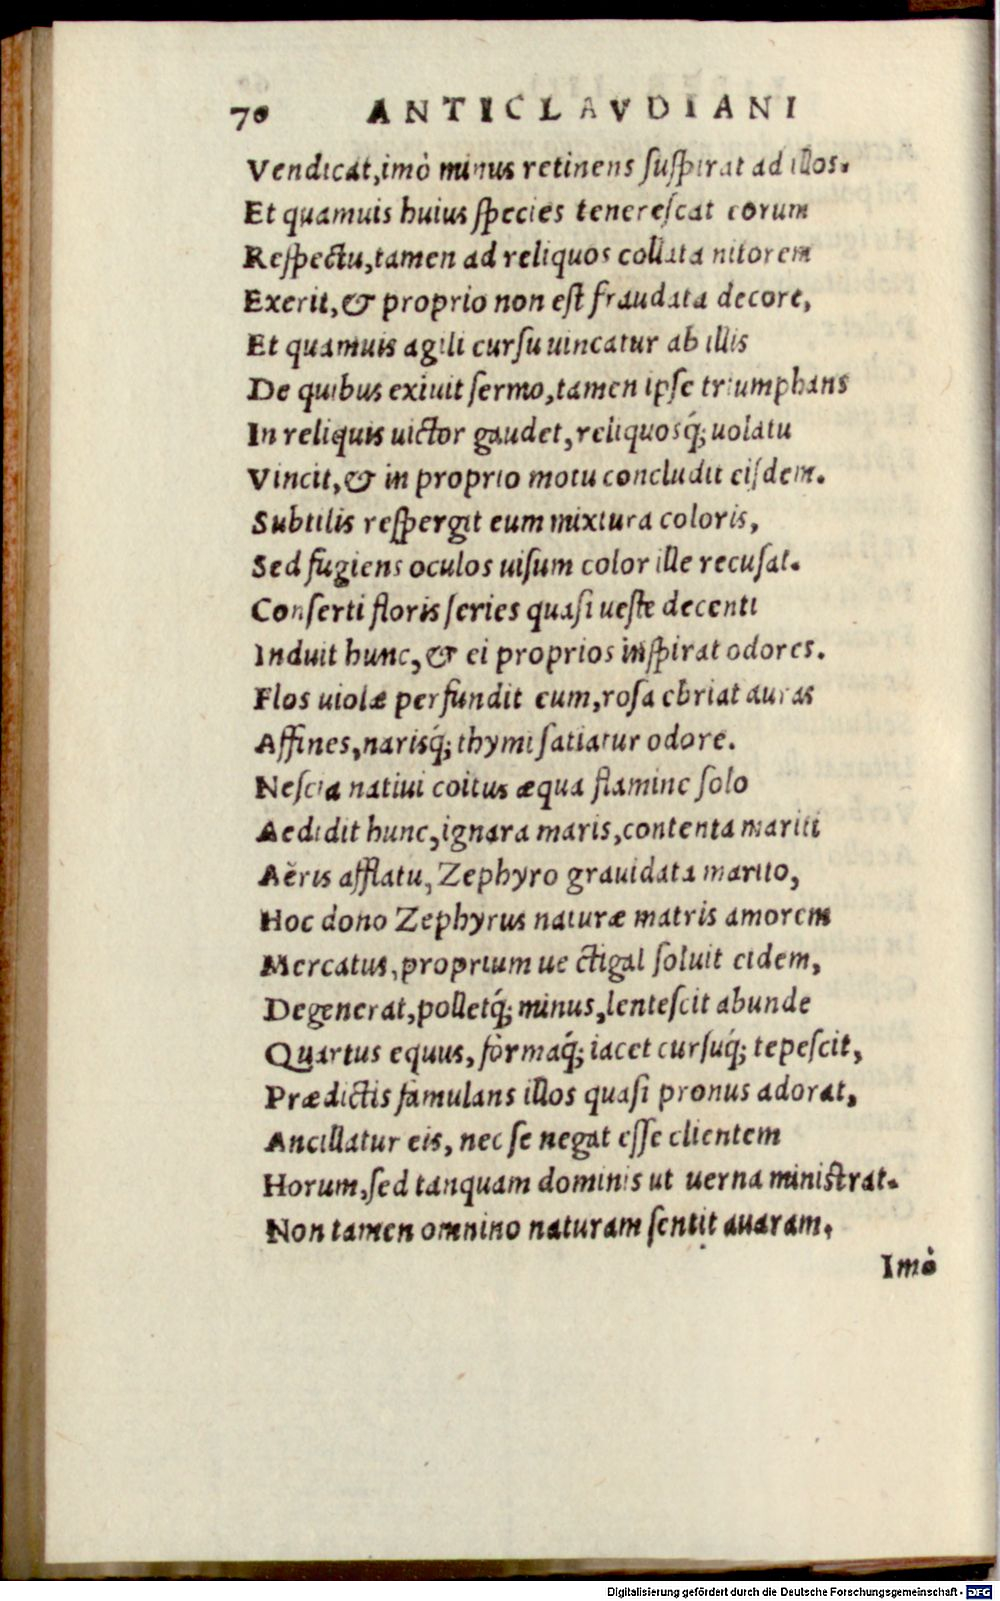 70 ANTICLAVDIANI
Vendicat,imò minus retinens suspirat ad illos.
Et quamuis huius species tenerescat eorum
Respectu,tamen ad reliquos collata nitorem
Exerit,& proprio non est fraudata decore,
Et quamuis agili cursu uincatur ab illis
De quibus exiuit sermo,tamen ipse triumphans
In reliquis uictor gaudet,reliquosq́; uolatu
Vincit,& in proprio motu concludit eisdem.
Subtilis respergit eum mixtura coloris,
Sed fugiens oculos uisum color ille recusat.
Conserti floris series quasi ueste decenti
Induit hunc,& ei proprios inspirat odores.
Flos uiolæ perfundit eum,rosa ebriat auras
Affines,narisq́; thymi satiatur odore.
Nescia natiui coitus æqua flamine solo
Aedidit hunc,ignara maris,contenta mariti
Aëris afflatu, Zephyro grauidata marito,
Hoc dono Zephyrus naturæ matris amorem
Mercatus,proprium ue ctigal soluit eidem,
Degenerat,polletq́; minus,lentescit abunde
Quartus equus, formaq́; iacet cursuq́; tepescit,
Prædictis famulans illos quasi pronus adorat,
Ancillatur eis, nec se negat esse clientem
Horum,sed tanquam dominis ut uerna ministrat.
Non tamen omnino naturam sentit auaram,
Imò
Digitalisierung gefördert durch die Deutsche Forschungsgemeinschaft - DFG